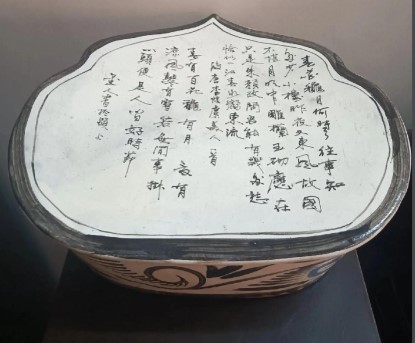 春花龝月何時了往事知
多少小樓昨夜又東風故國
不堪月明中雕欄玉砌應在
只是朱顏改問君能有幾多愁
恰似江春水向東流
唐李煜虞美人
春有百花龝有月夏有
涼風冬有雪若無閒事掛
心頭便是人間好時節
宋人書